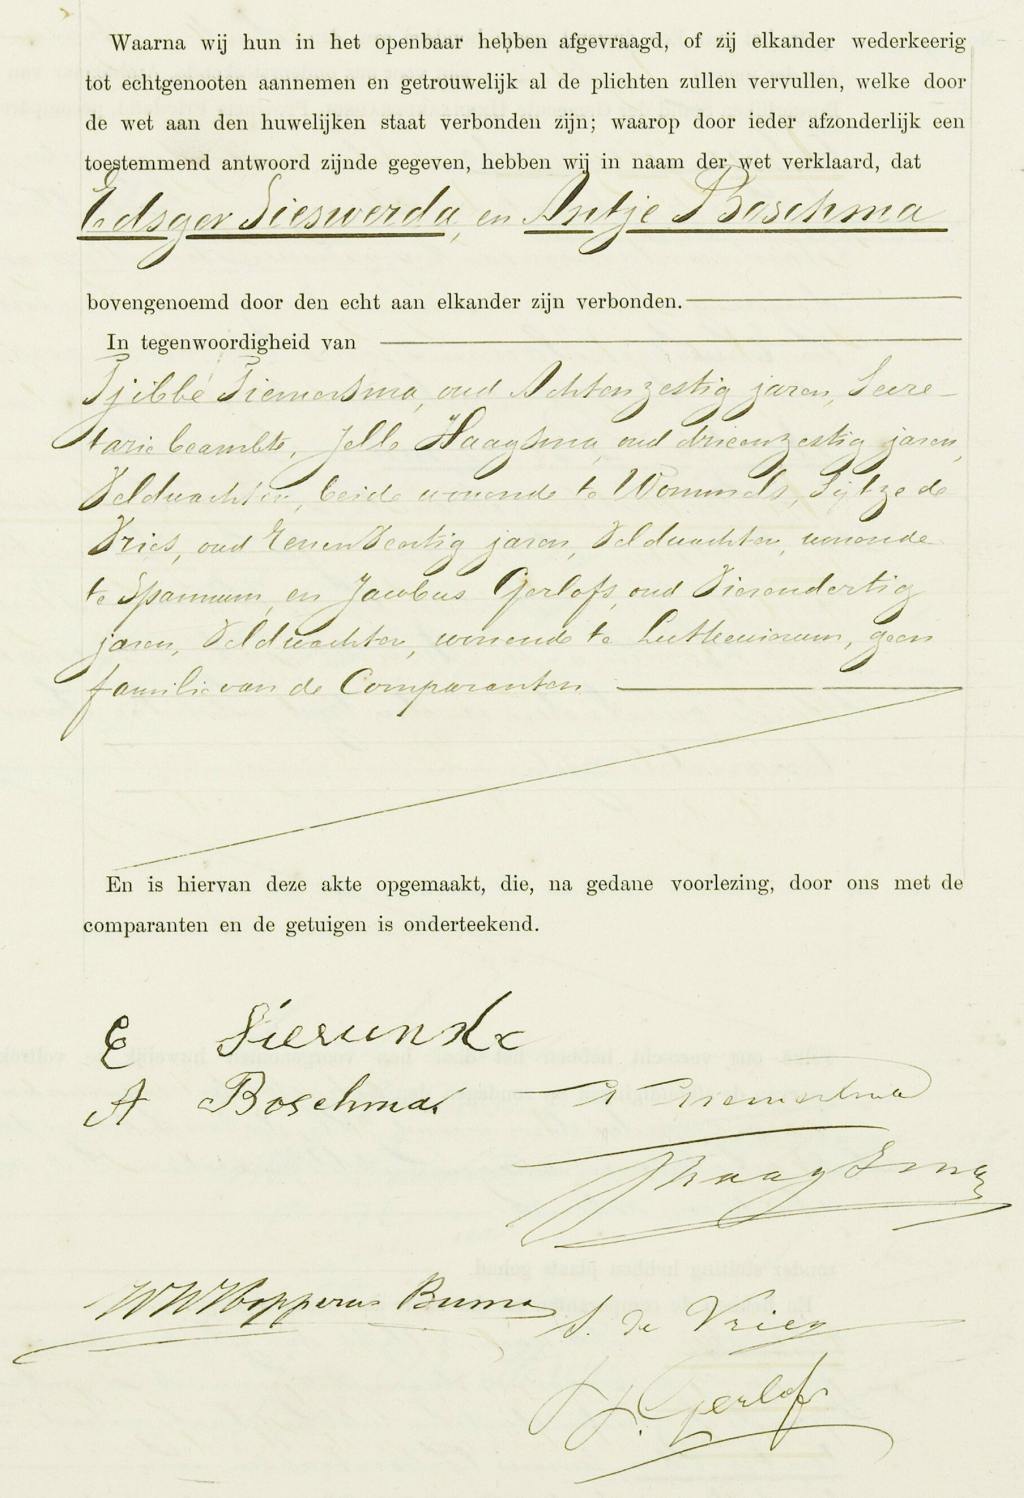 Waarna wij hun in het openbaar hebben afgevraagd, of zij elkander wederkeerig
tot echtgenooten aannemen en getrouwelijk al de plichten zullen vervullen, welke door
de wet aan den huwelijken staat verbonden zijn; waarop door ieder afzonderlijk een
toestemmend antwoord zijnde gegeven, hebben wij in naam der wet verklaard, dat
Edsger Sieswerda, en Antje Boschma
bovengenoemd door den echt aan elkander zijn verbonden.
In tegenwoordigheid van
Tjibbe Tiemersma, oud Achtenzestig jaren, Secre-
tarie beambte, Jelle Haagsma, oud drieenzestig jaren,
Veldwachter, beide wonende te Wommels, Sijtze de
Vries, oud Eenenveertig jaren, Veldwachter, wonende
te Spannum, en Jacobus Gerlofs, oud Vierendertig
jaren, Veldwachter, wonende te Lutkewierum, geen
familie van de Comparanten
En is hiervan deze akte opgemaakt, die, na gedane voorlezing, door ons met de
comparanten en de getuigen is onderteekend.
E Sieswerda
A Boschma
T Tiemersma
J Haagsma
WW Hopperus Buma
S. de Vries
J. Gerlofs